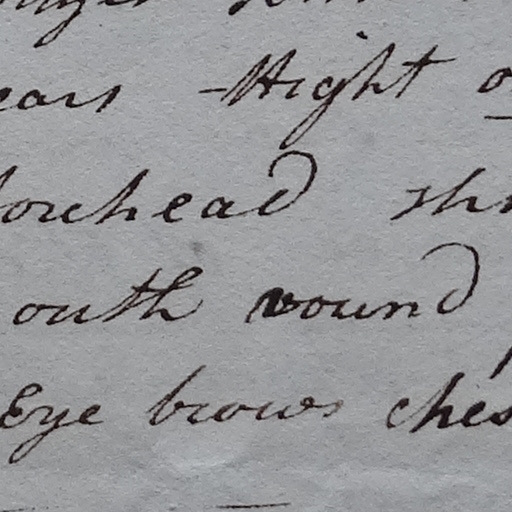 ears - Hight
forehead
outh round
Eye brows ches